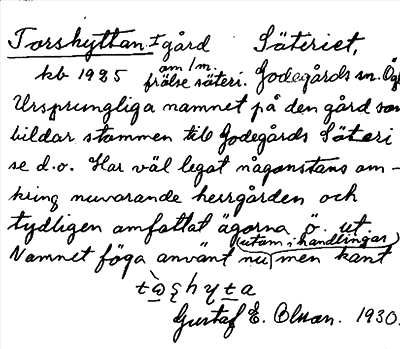 Torskyttan ⨯ gård Säteriet,
kb 1925 am/m. frälse säteri. Godegårds sn. Ög
Ursprungliga namnet på den gård som
bildar stammen till Godegårds Säteri
se d.o. Har väl legat någonstans om-
kring nuvarande herrgården och
tydligen omfattat ägorna ö. ut.
Namnet föga använt nu (utom i handlingar) men känt
Gustaf E. Olsson. 1930.